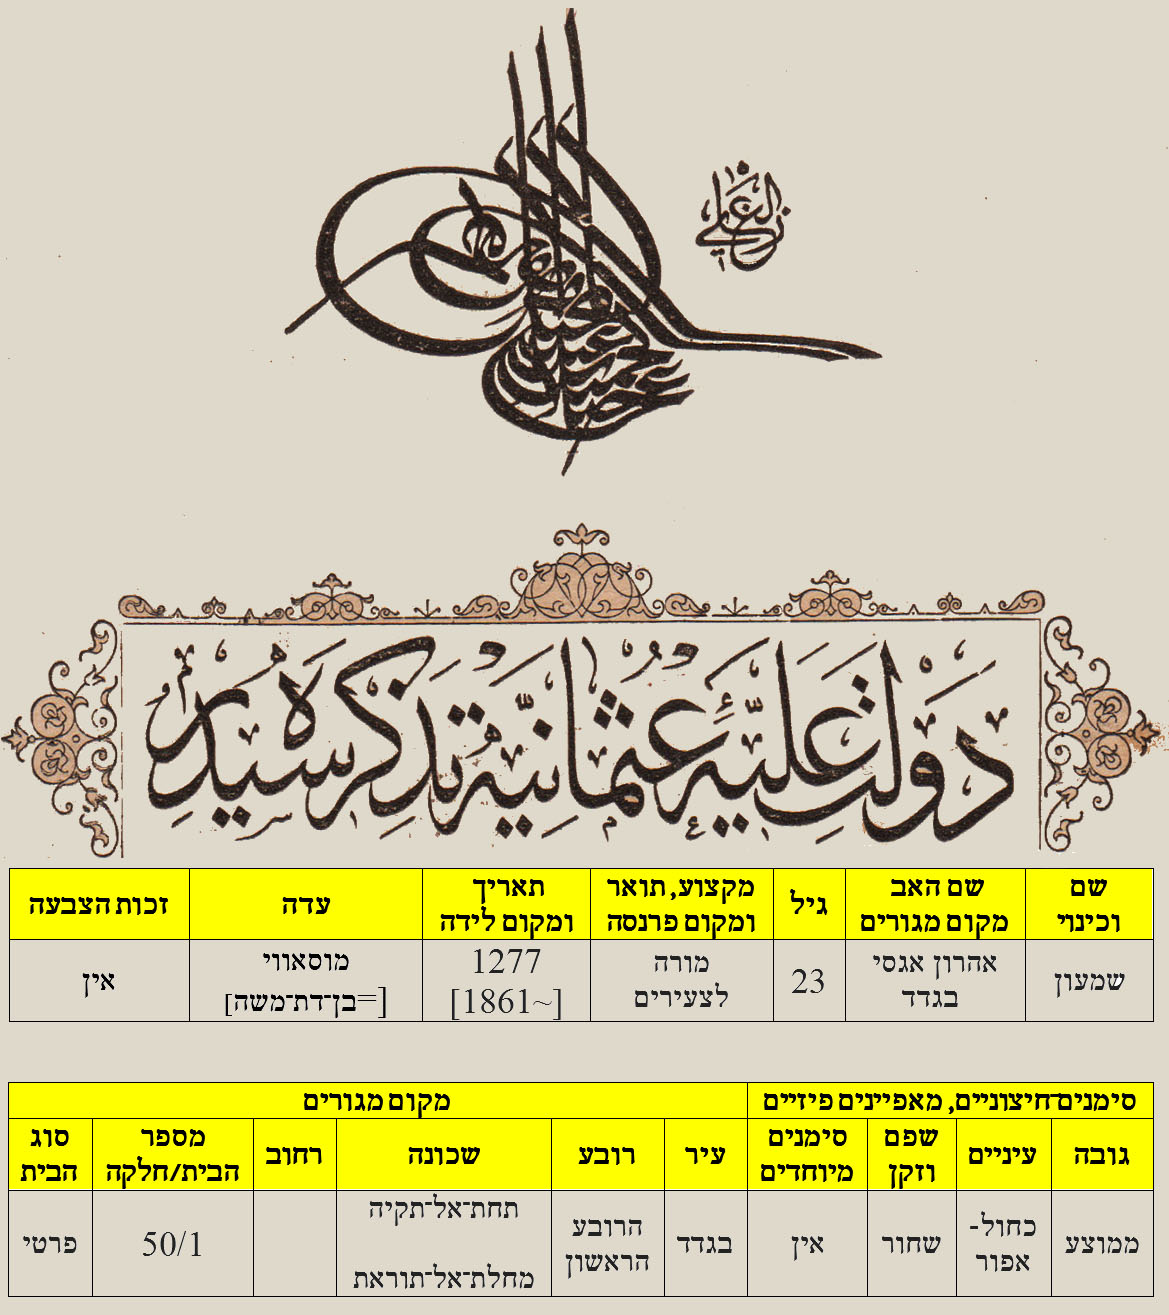 الغازي
دولت عليّۀ عثمانيّه تذكره سيدر
שם
וכינוי
שם האב
מקום מגורים
גיל
מקצוע, תואר
ומקום פרנסה
תאריך
ומקום לידה
עדה
זכות הצבעה
שמעון
אהרון אגסי
בגדד
23
מורה
לצעירים
1277
[~1861]
מוסאווי
[=בן־דת־משה]
אין
סימנים־חיצוניים, מאפיינים פיזיים
מקום מגורים
גובה
עיניים
שפם
וזקן
סימנים
מיוחדים
עיר
רובע
שכונה
רחוב
מספר
הבית/חלקה
סוג
הבית
ממוצע
כחול-
אפור
שחור
אין
בגדד
הרובע
הראשון
תחת־אל־תקיה
מחלת־אל־תוראת
50/1
פרטי